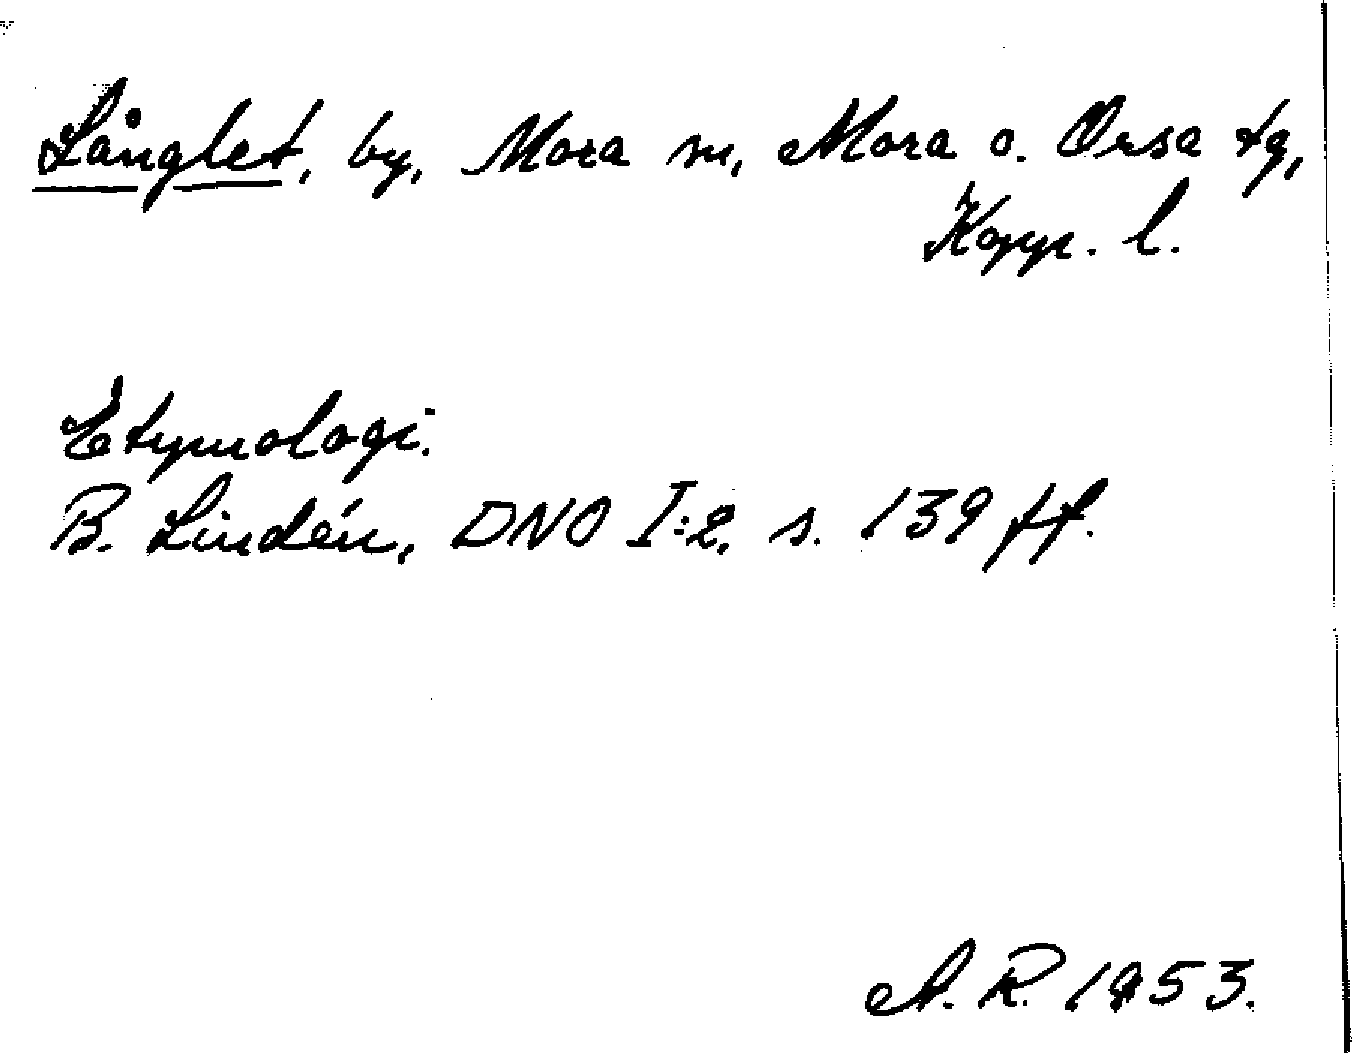 Långlet, by, Mora sn, Mora o. Orsa tg,
Kopp. l.
Etymologi.
B. Lindén, DNO I:2, s. 139 ff.
A. R. 1953.